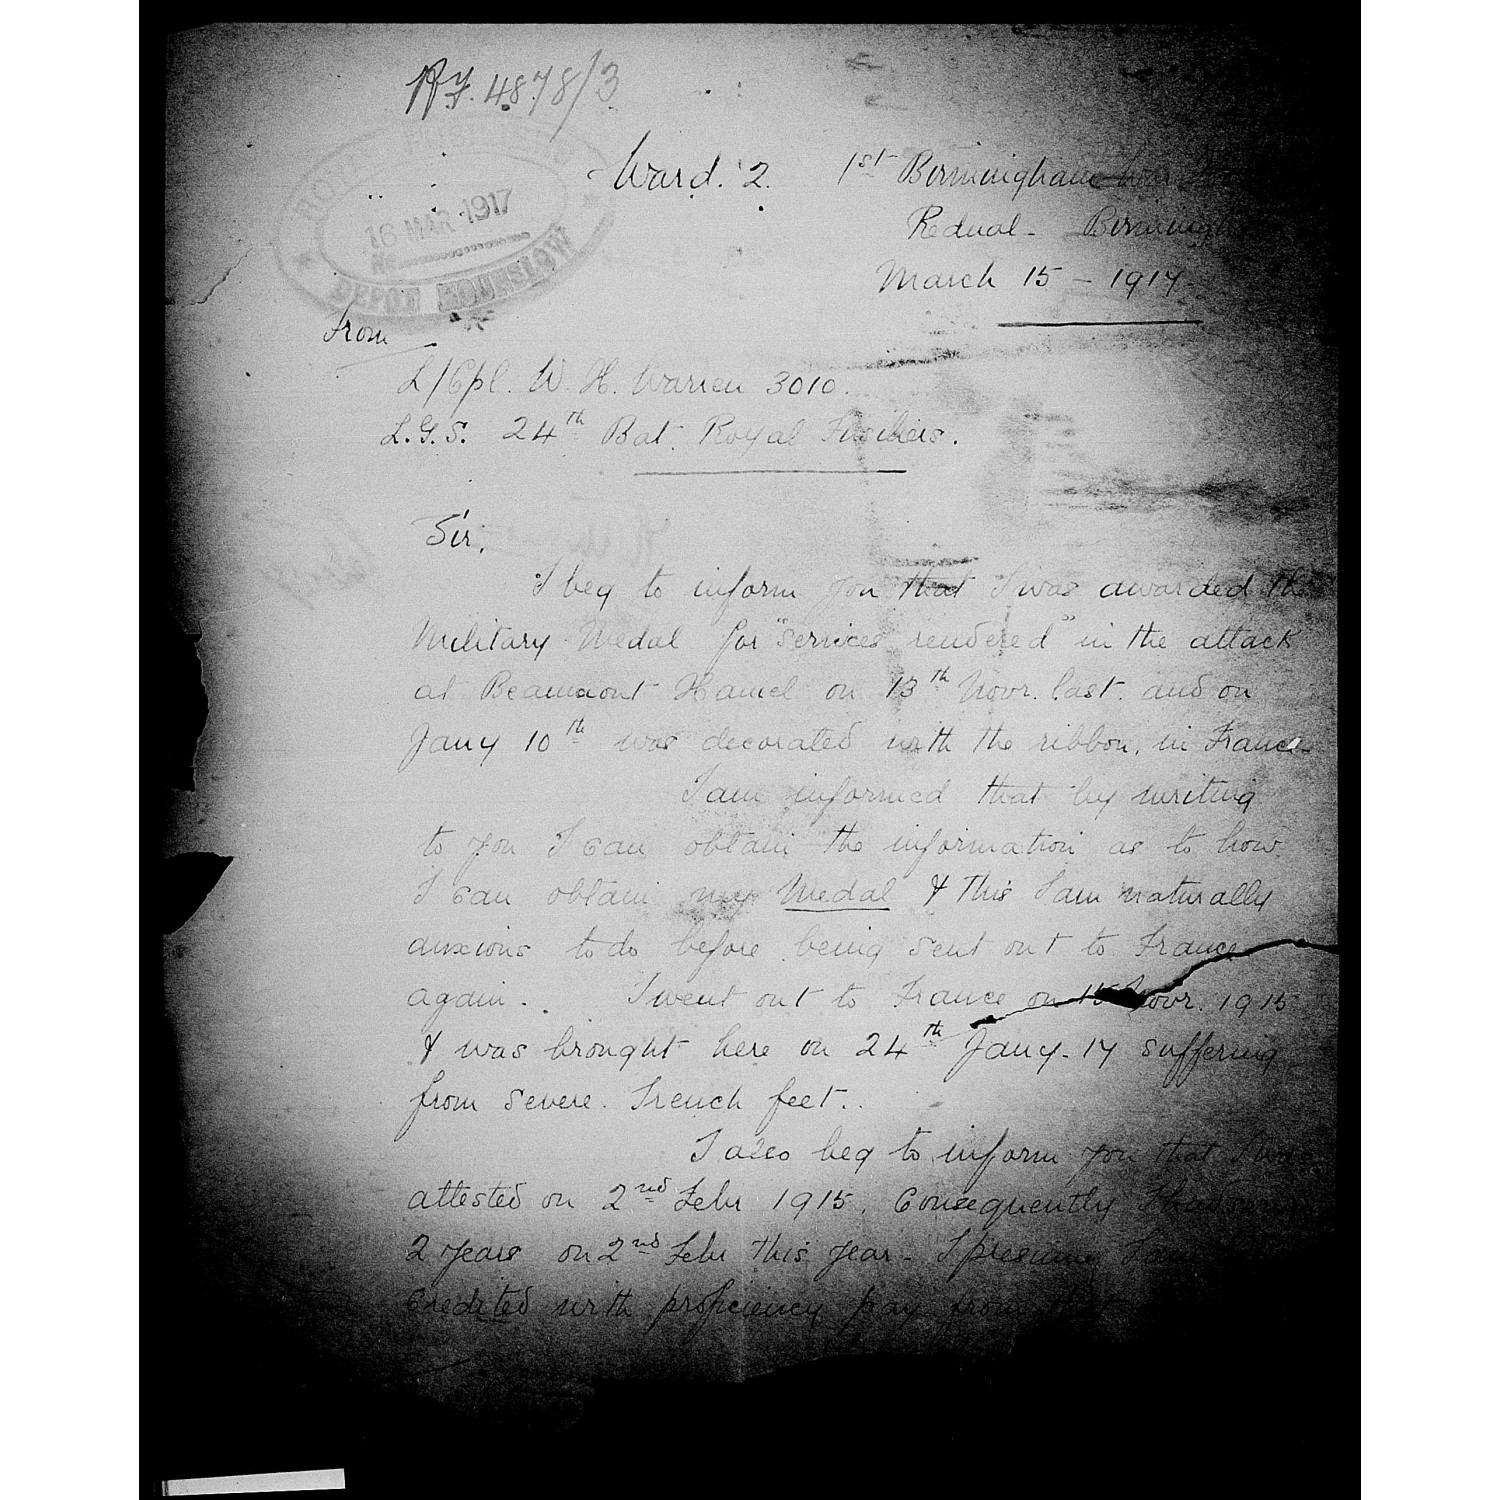 RF. 4878/3
ROYAL FUSILIERS
16 MAR 1917
No
DEPOT HOUNSLOW
Ward. 2. 1st Birmingham War
Rednal - Birmingham
March 15 - 1917.
From
L/Cpl. W. H. Warren 3010.
L.G.S. 24th Bat. Royal Fusiliers.
Sir,
I beg to inform you that I was awarded the
Military Medal for "services rendered" in the attack
at Beaumont Hamel on 13th Novr. last. and on
Jany 10th was decorated with the ribbon, in France.
I am informed that by writing
to you I can obtain the information as to how
I can obtain my Medal & this I am naturally
anxious to do before being sent out to France
again. I went out to France on 15 Novr. 1915
& was brought here on 24th Jany. 17 suffering
from severe Trench feet..
I also beg to inform you that I was
attested on 2nd Febr 1915. Consequently I had
2 years on 2nd Febr this year - I presume I am
credited with proficiency pay from that